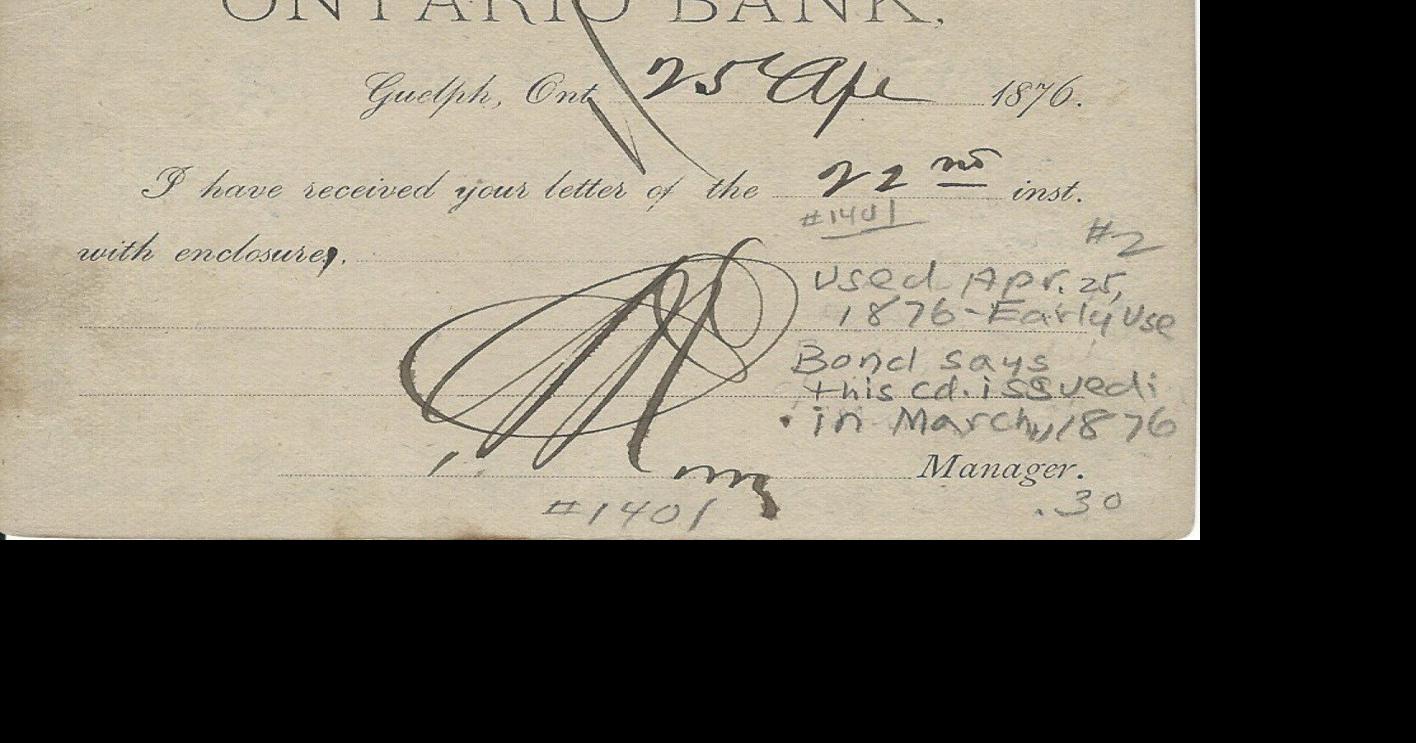 ONTARIO BANK,
Guelph, Ont 25 Apl 1876.
I have received your letter of the 22nd inst.
#1401
with enclosures.
#2
Used Apr. 25,
1876-Early Use
Bond says
this cd. issued
in March, 1876
Manager.
#1401
.30